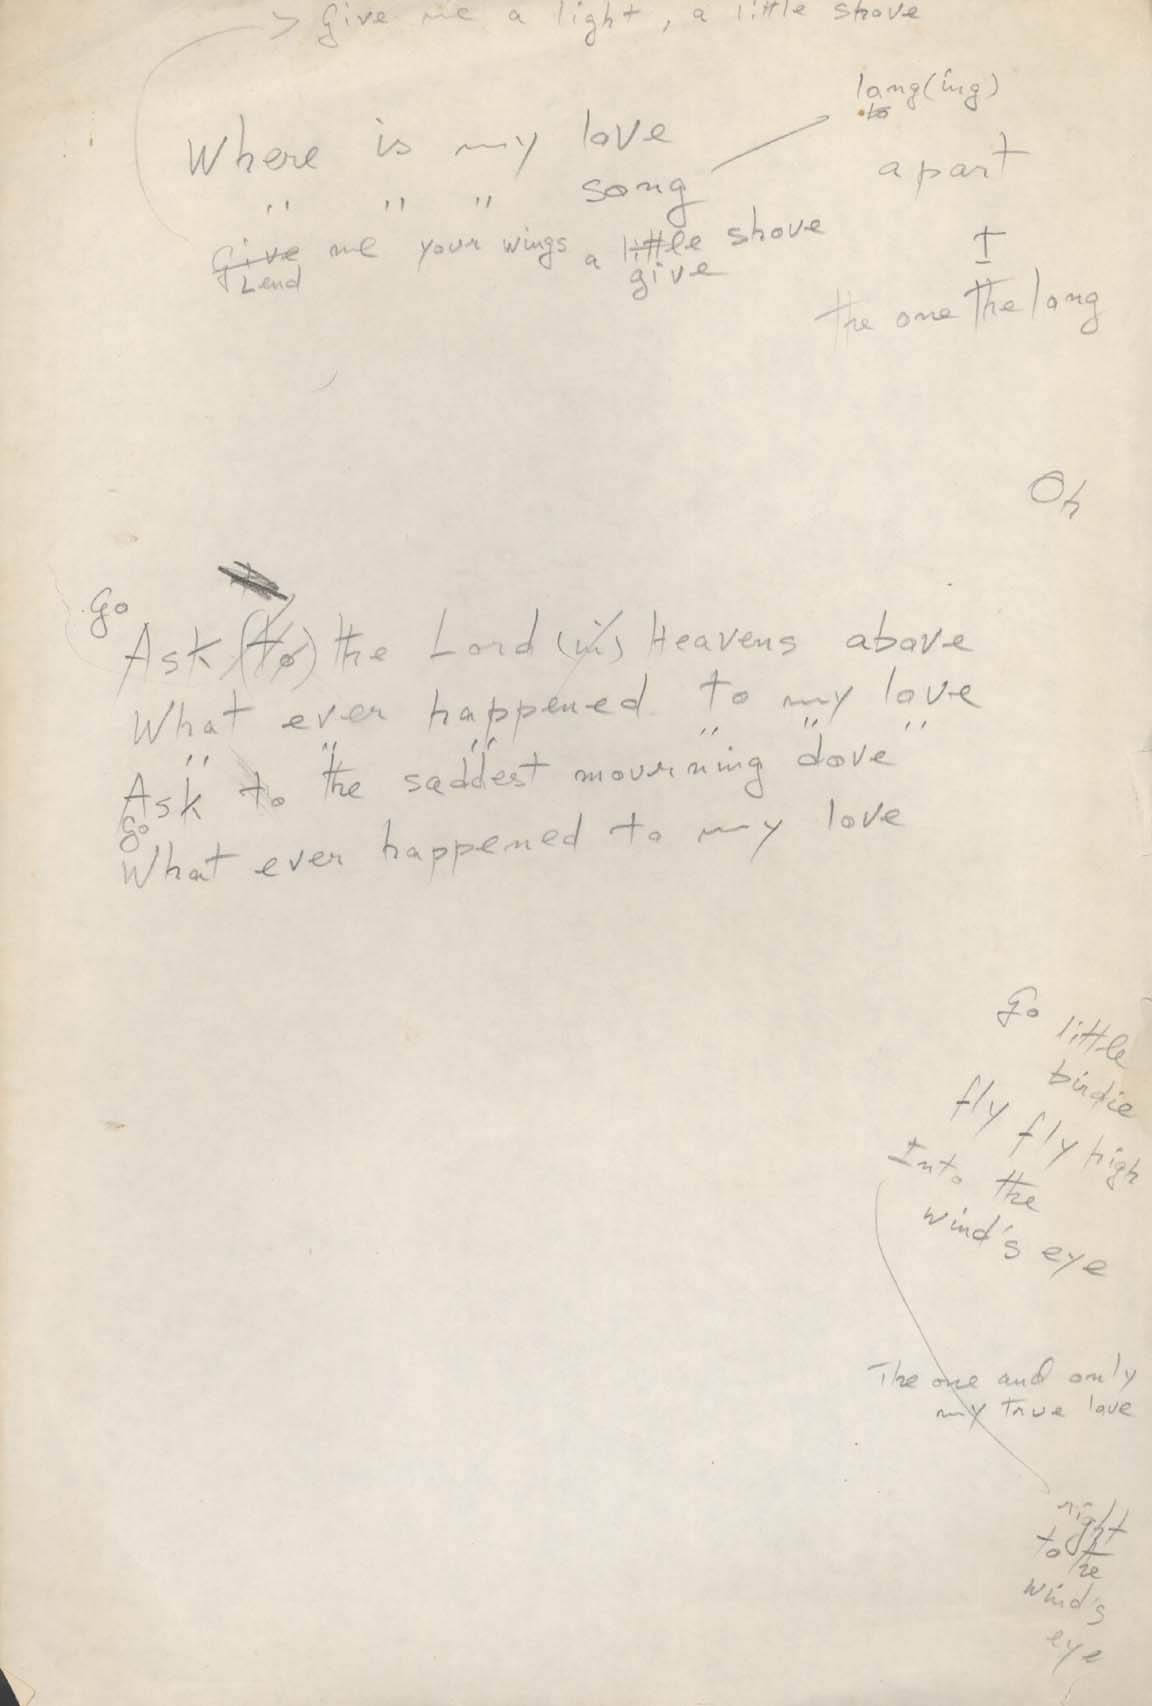 Give me a light, a little shove
long(ing)
to
Where is my love
apart
" " " song
I
Give me your wings a little shove
Lend give
the one the long
Oh
Go
Ask (to) the Lord (in) Heavens above
What ever happened to my love
" " " " " "
Ask to the saddest mourning dove
Go
What ever happened to my love
Go little
birdie
fly fly high
Into the
wind's eye
The one and only
my true love
right
to the
wind's
eye